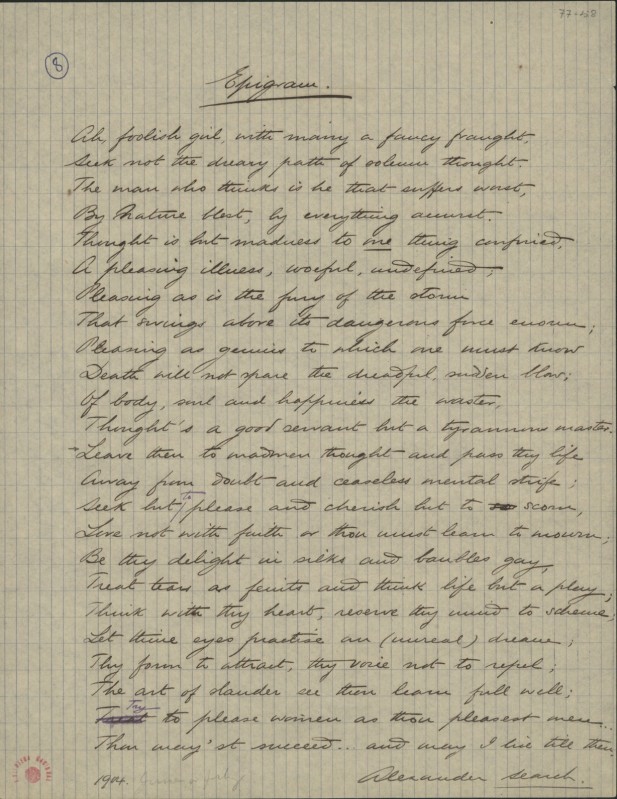 77-68
8
Epigram.
Ah, foolish girl, with many a fancy fraught,
Seek not the dreary path of solemn thought.
The man who thinks is he that suffers worst,
By Nature blest, by everything accurst.
Thought is but madness to one thing confined,
A pleasing illness, woeful, undefined,
Pleasing as is the fury of the storm
That swings above its dangerous force enorm;
Pleasing as genius to which one must know
Death will not spare the dreadful, sudden blow;
Of body, soul and happiness the waster,
Thought's a good servant but a tyrannous master.
Leave then to madmen thought and pass thy life
Away from doubt and ceaseless mental strife;
Seek but to please and cherish but to scorn,
Love not with faith or thou must learn to mourn;
Be thy delight in silks and baubles gay,
Treat tears as feints and think life but a play;
Think with thy heart, reserve thy mind to scheme;
Let thine eyes practise an (unreal) dream;
Thy form to attract, thy voice not to repel;
The art of slander see thou learn full well;
Try to please women as thou pleasest men..
Thou may'st succeed.. and may I live till then.
1904.
Alexander Search.